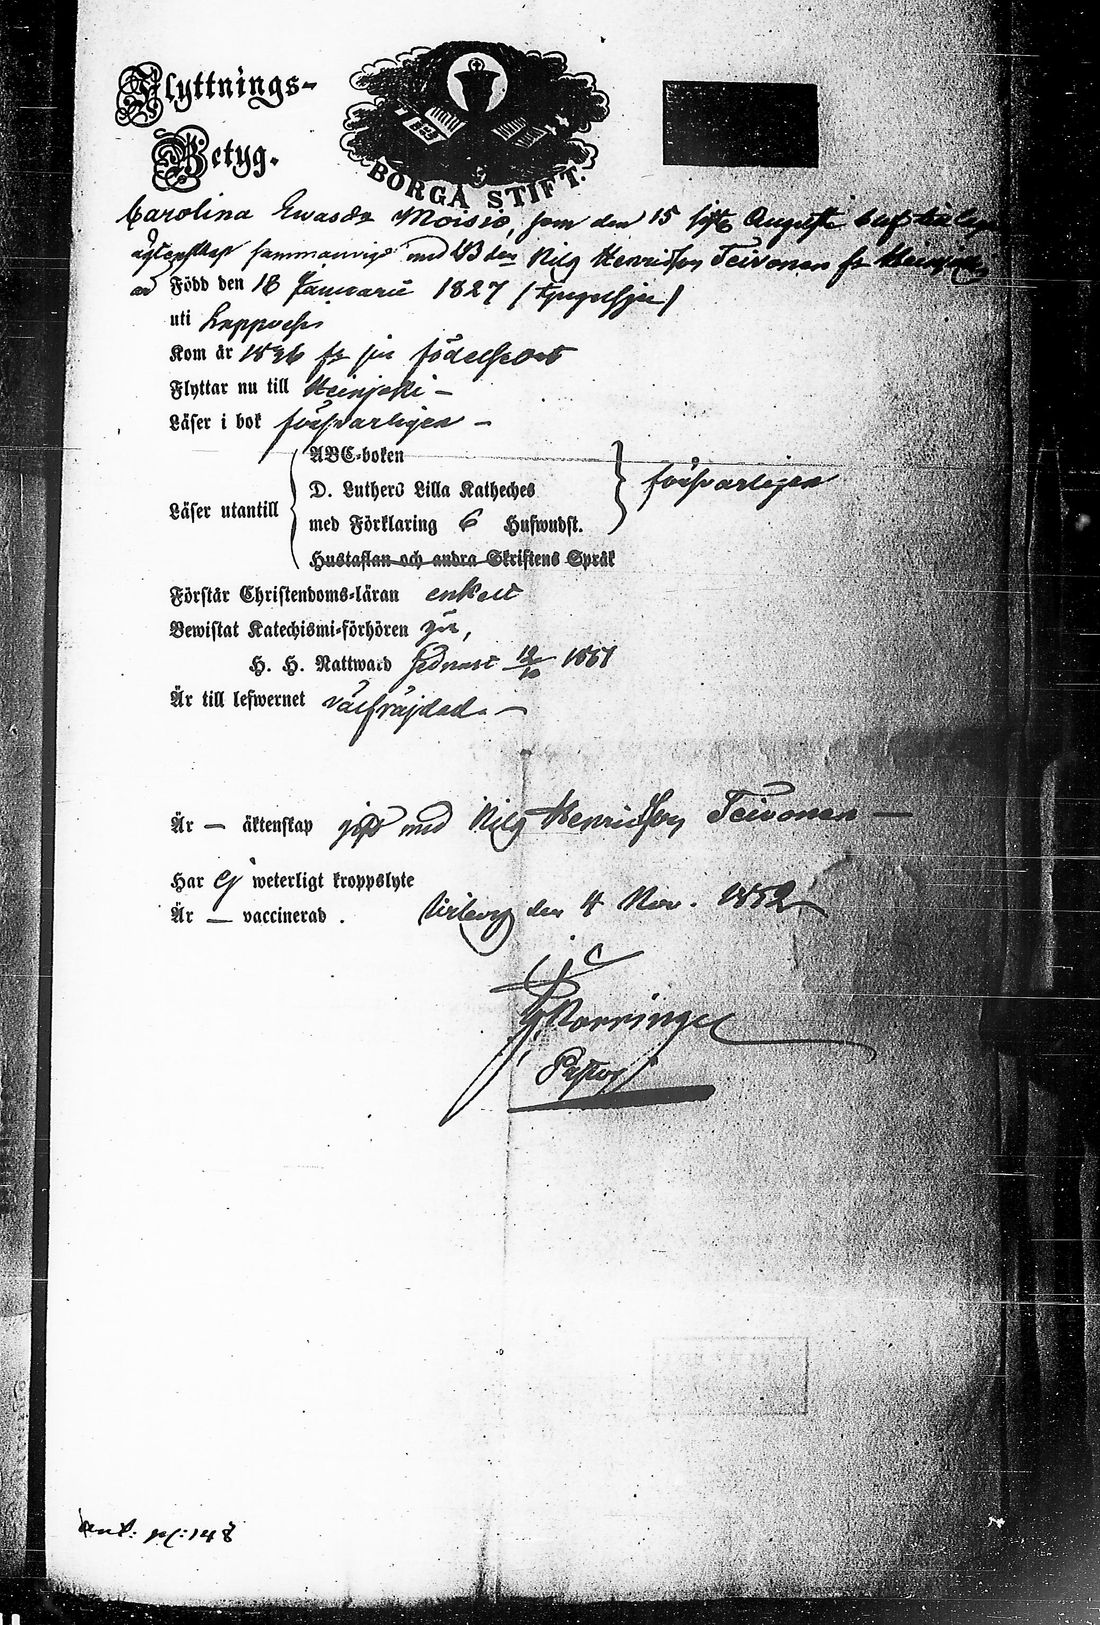 Flyttnings-
Betyg.
BORGÅ STIFT.
Carolina Ewasdr Moisio, som den 15 sistl. Augusti
äktenskap sammanvigd med Bden Nils Henricsson Teivonen fr Heinjoki
är Född den 18 Januarii 1827 (tjugosju)
uti
Kom år 1846 fr sin födelseort
Flyttar nu till Heinjoki —
Läser i bok försvarligen —
Läser utantill
ABC-boken
D. Luthers Lilla Katheches
med Förklaring 6 Hufwudst.
försvarligen
Hustaflan och andra Skriftens Språk
Förstår Christendoms-läran enkelt
Bewistat Katechismi-förhören ja,
H. H. Nattward sednast 12/10 1851
Är till lefwernet välfräjdad. —
Är — äktenskap gift med Nils Henricsson Teivonen —
Har ej weterligt kroppslyte
Är — vaccinerad .
Wiborg den 4 Nov. 1852
Pastor
Ank: N: 148